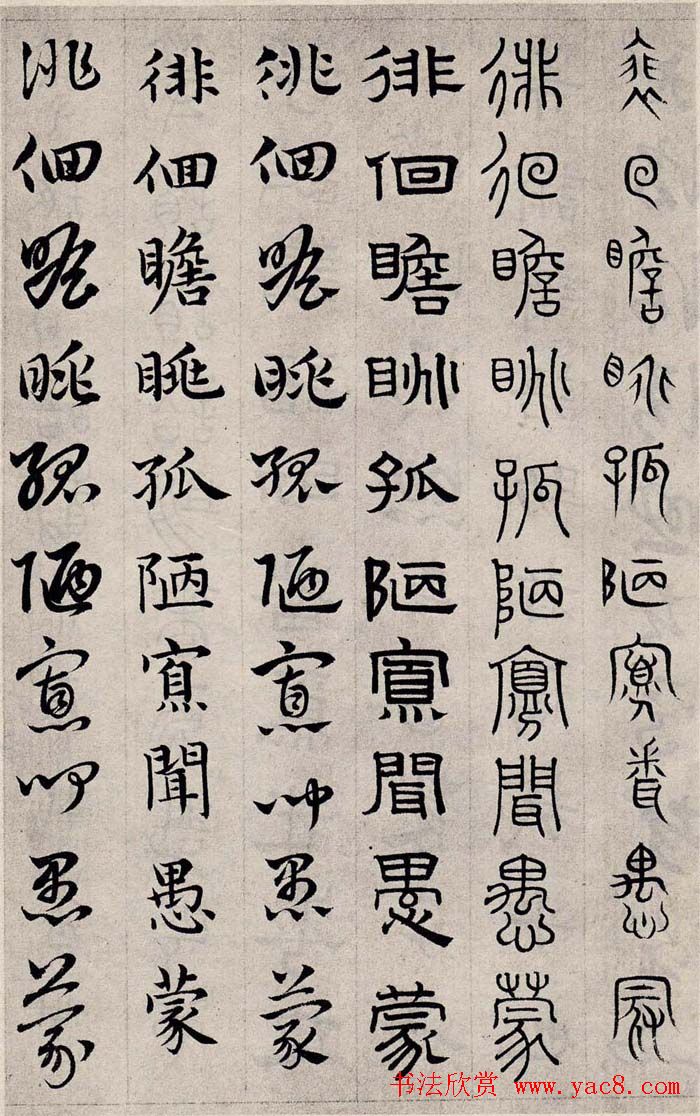 徘徊瞻眺孤陋寡聞愚蒙
徘徊瞻眺孤陋寡聞愚蒙
徘徊瞻眺孤陋寡聞愚蒙
徘徊瞻眺孤陋寡聞愚蒙
徘徊瞻眺孤陋寡聞愚蒙
徘徊瞻眺孤陋寡聞愚蒙
书法欣赏 www.yac8.com